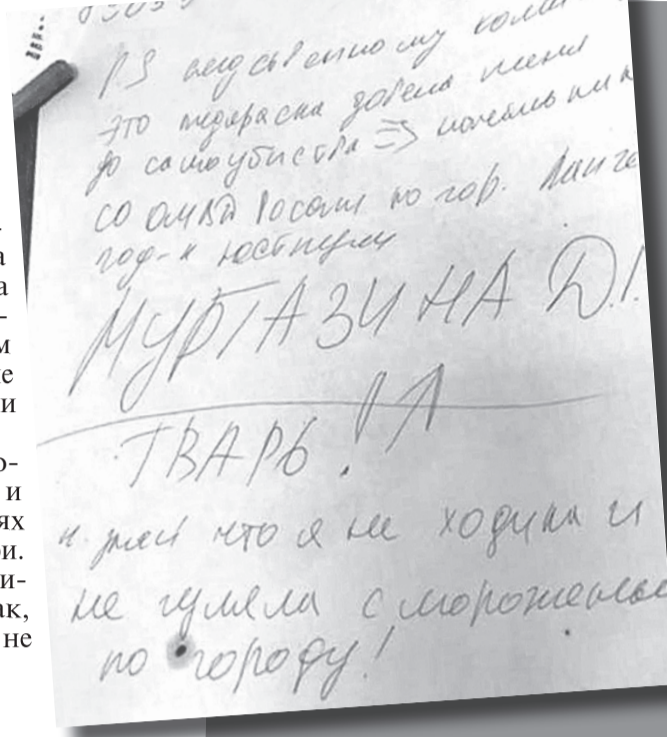 а
а
-
м
и
о-
и
ях
и-
ак,
не
PS следственному
это довела меня
до самоубиства => начальник
СО ОМВД России по гор. Ланге
под-к юстиции
МУРТАЗИНА Д!.
ТВАРЬ!
и знай что я не ходила и
не гуляла с мороженым
по городу!